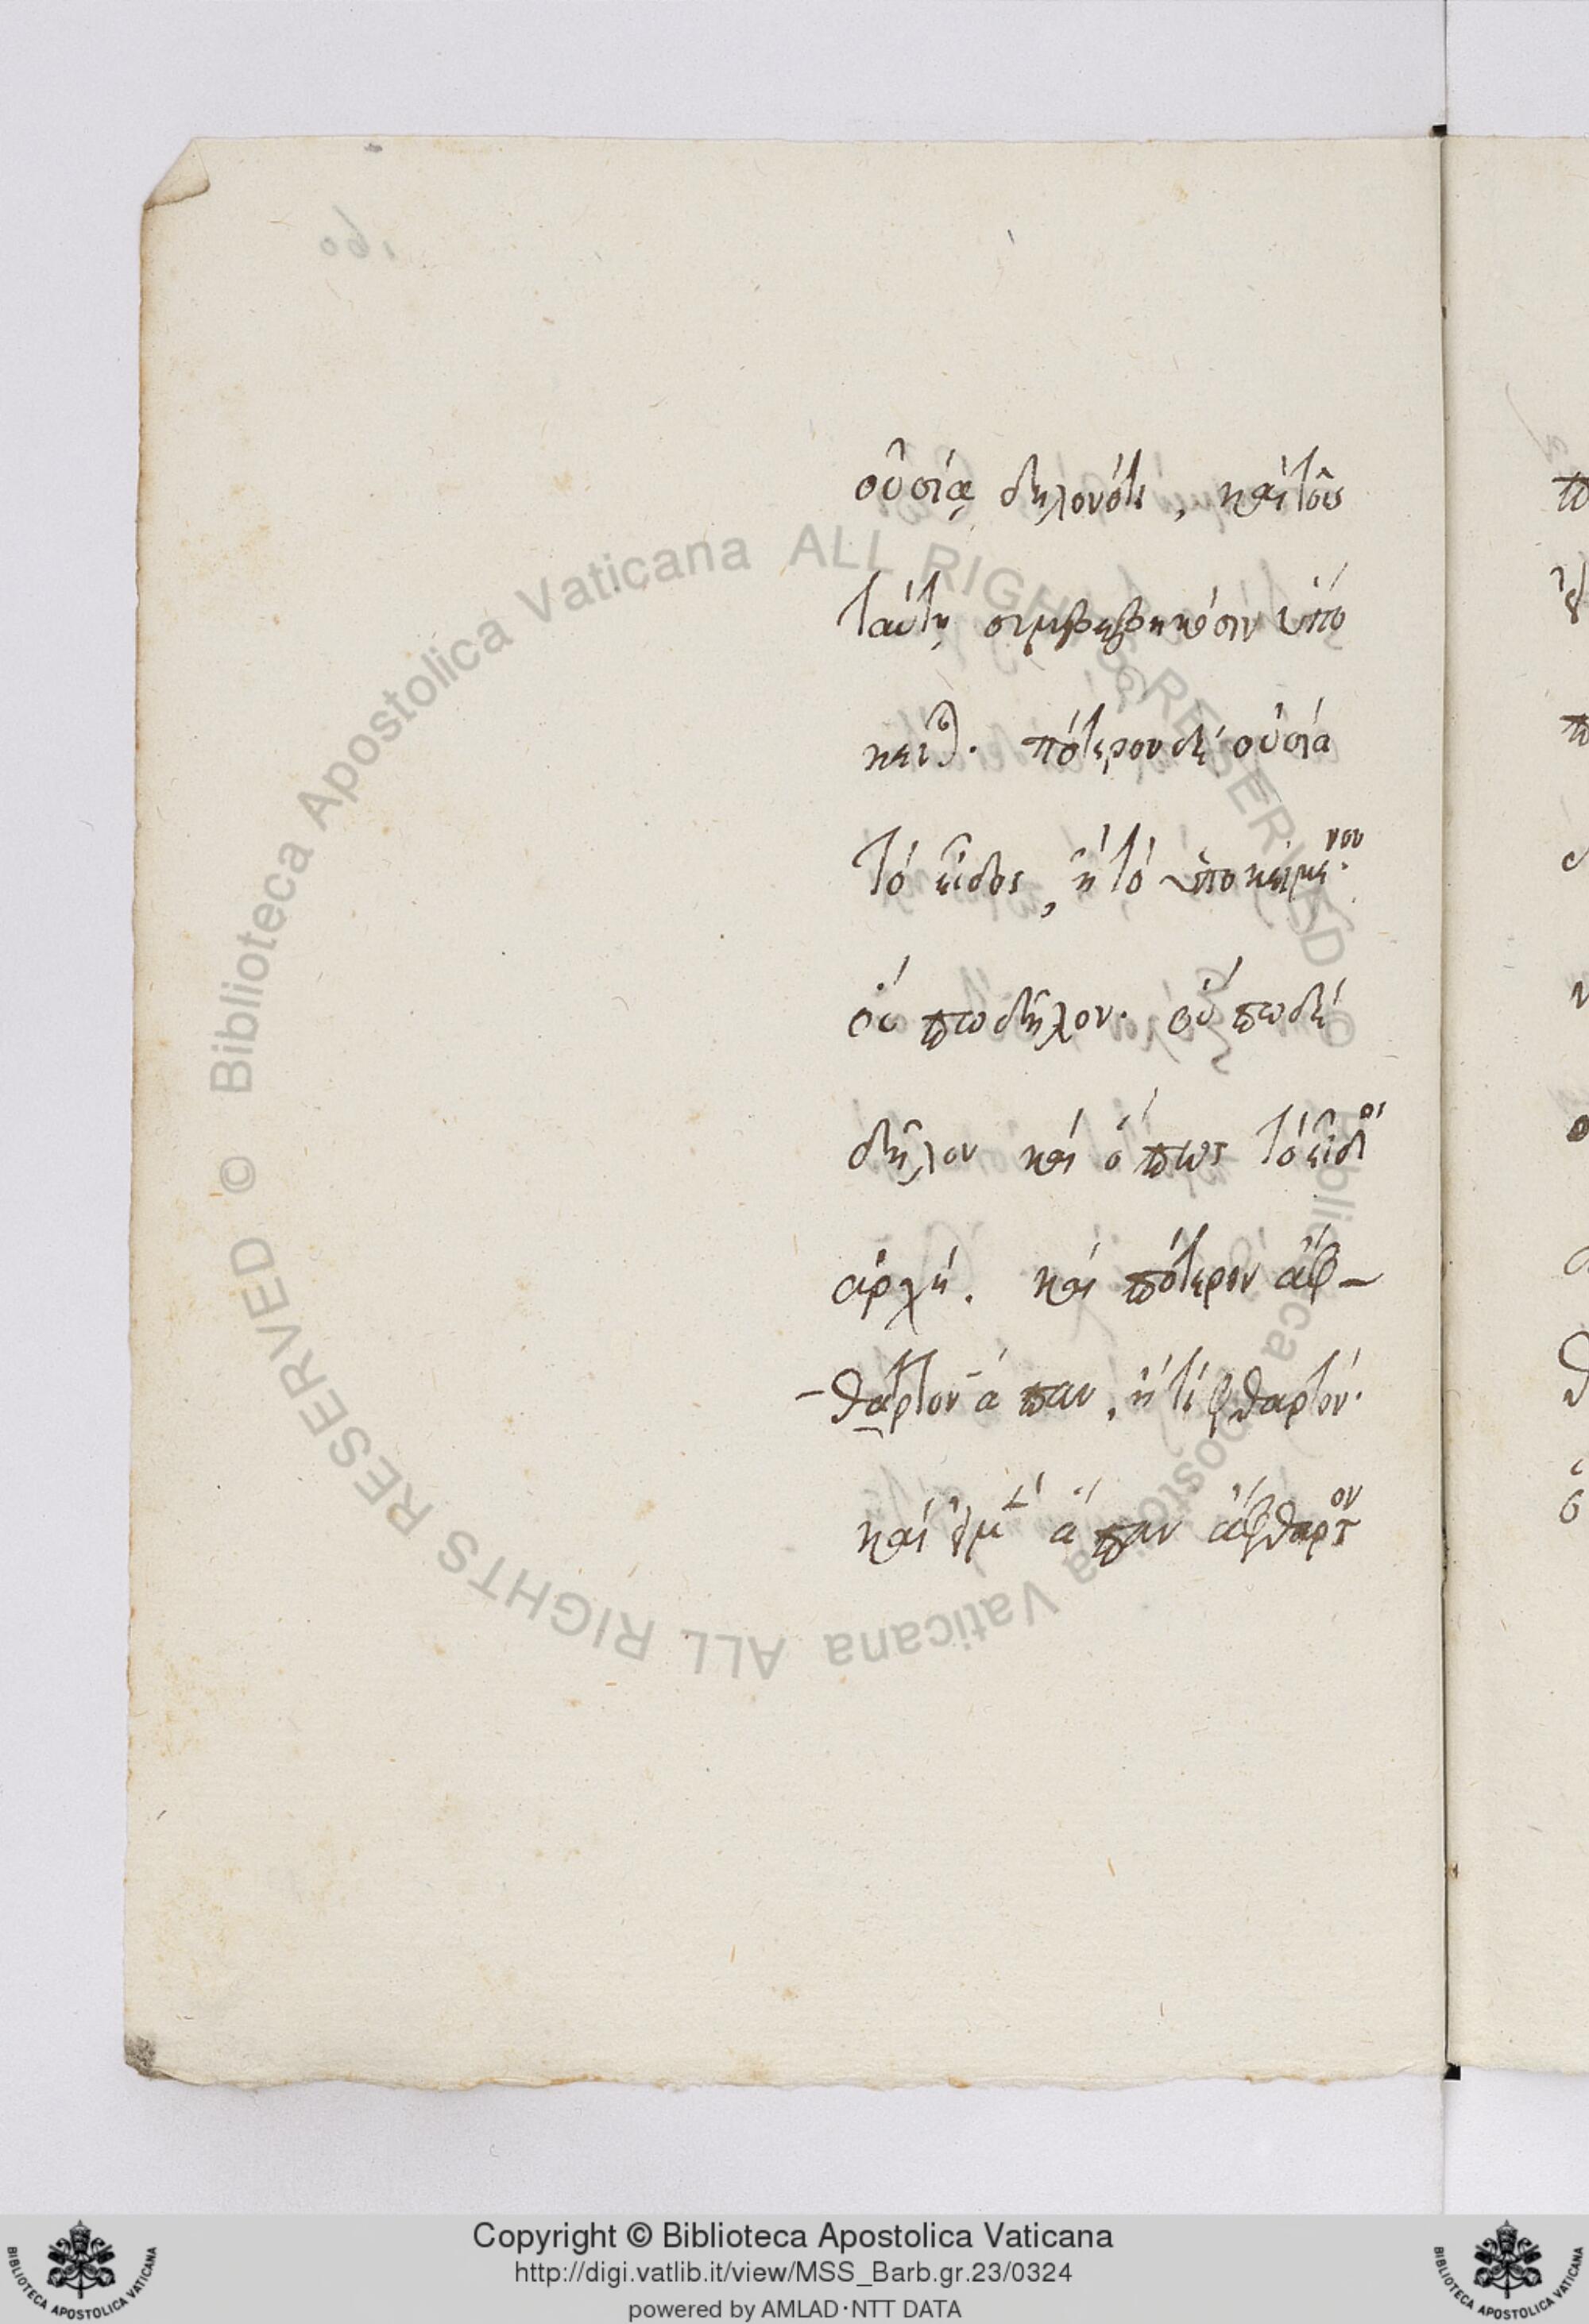 οὐσίᾳ δηλονότι, καὶ τοῖς
ταύτῃ συμβεβηκόσιν ὑπο
πότερον δὲ οὐσία
τὸ εἶδος, ἢ τὸ ὑποκείμενον.
οὔπω δῆλον. οὔπω δὲ
δῆλον καὶ ὅπως τὸ εἶδος
ἀρχή. καὶ πότερον ἄφ-
-θαρτον ἅπαν, ἤ τι φθαρτόν.
καὶ ἅπαν ἄφθαρτον
Biblioteca Apostolica Vaticana ALL RIGHTS RESERVED © Biblioteca Apostolica Vaticana ALL RIGHTS RESERVED ©
Copyright © Biblioteca Apostolica Vaticana
http://digi.vatlib.it/view/MSS_Barb.gr.23/0324
powered by AMLAD·NTT DATA
BIBLIOTECA APOSTOLICA VATICANA
BIBLIOTECA APOSTOLICA VATICANA